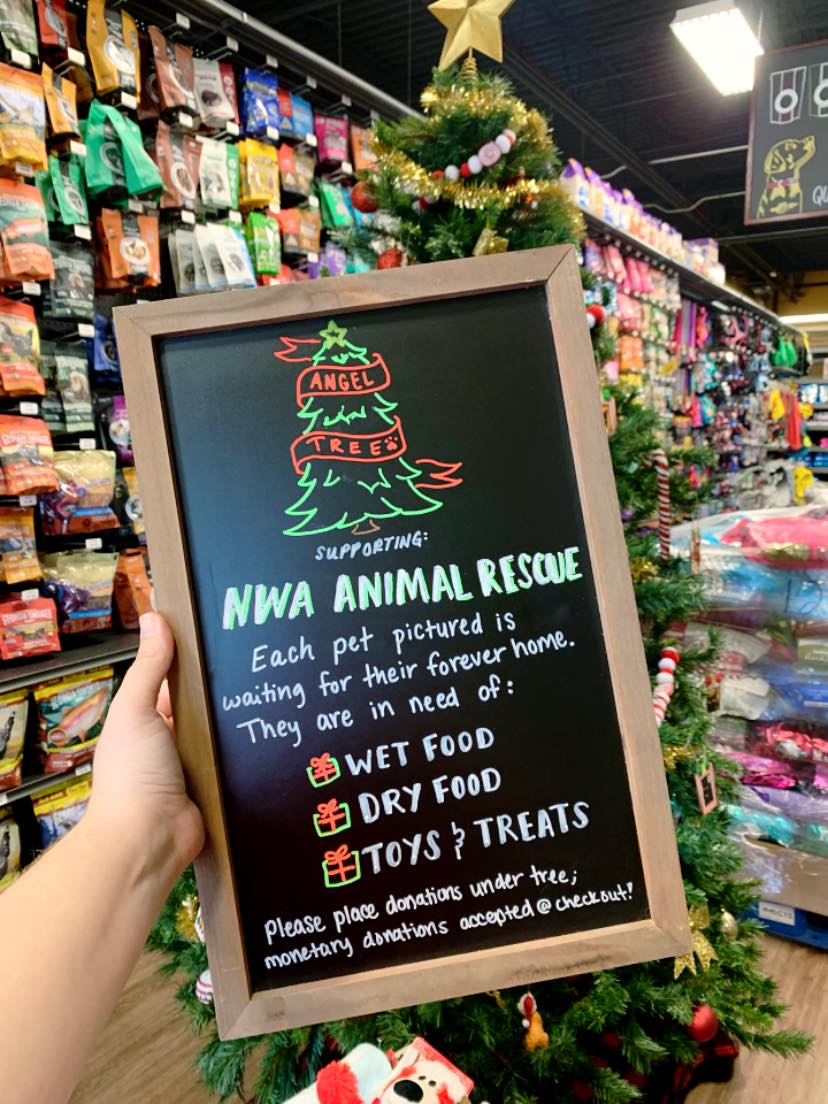 ANGEL
TREE
SUPPORTING:
NWA ANIMAL RESCUE
Each pet pictured is
waiting for their forever home.
They are in need of:
WET FOOD
DRY FOOD
TOYS & TREATS
Please place donations under tree;
monetary donations accepted @ checkout!